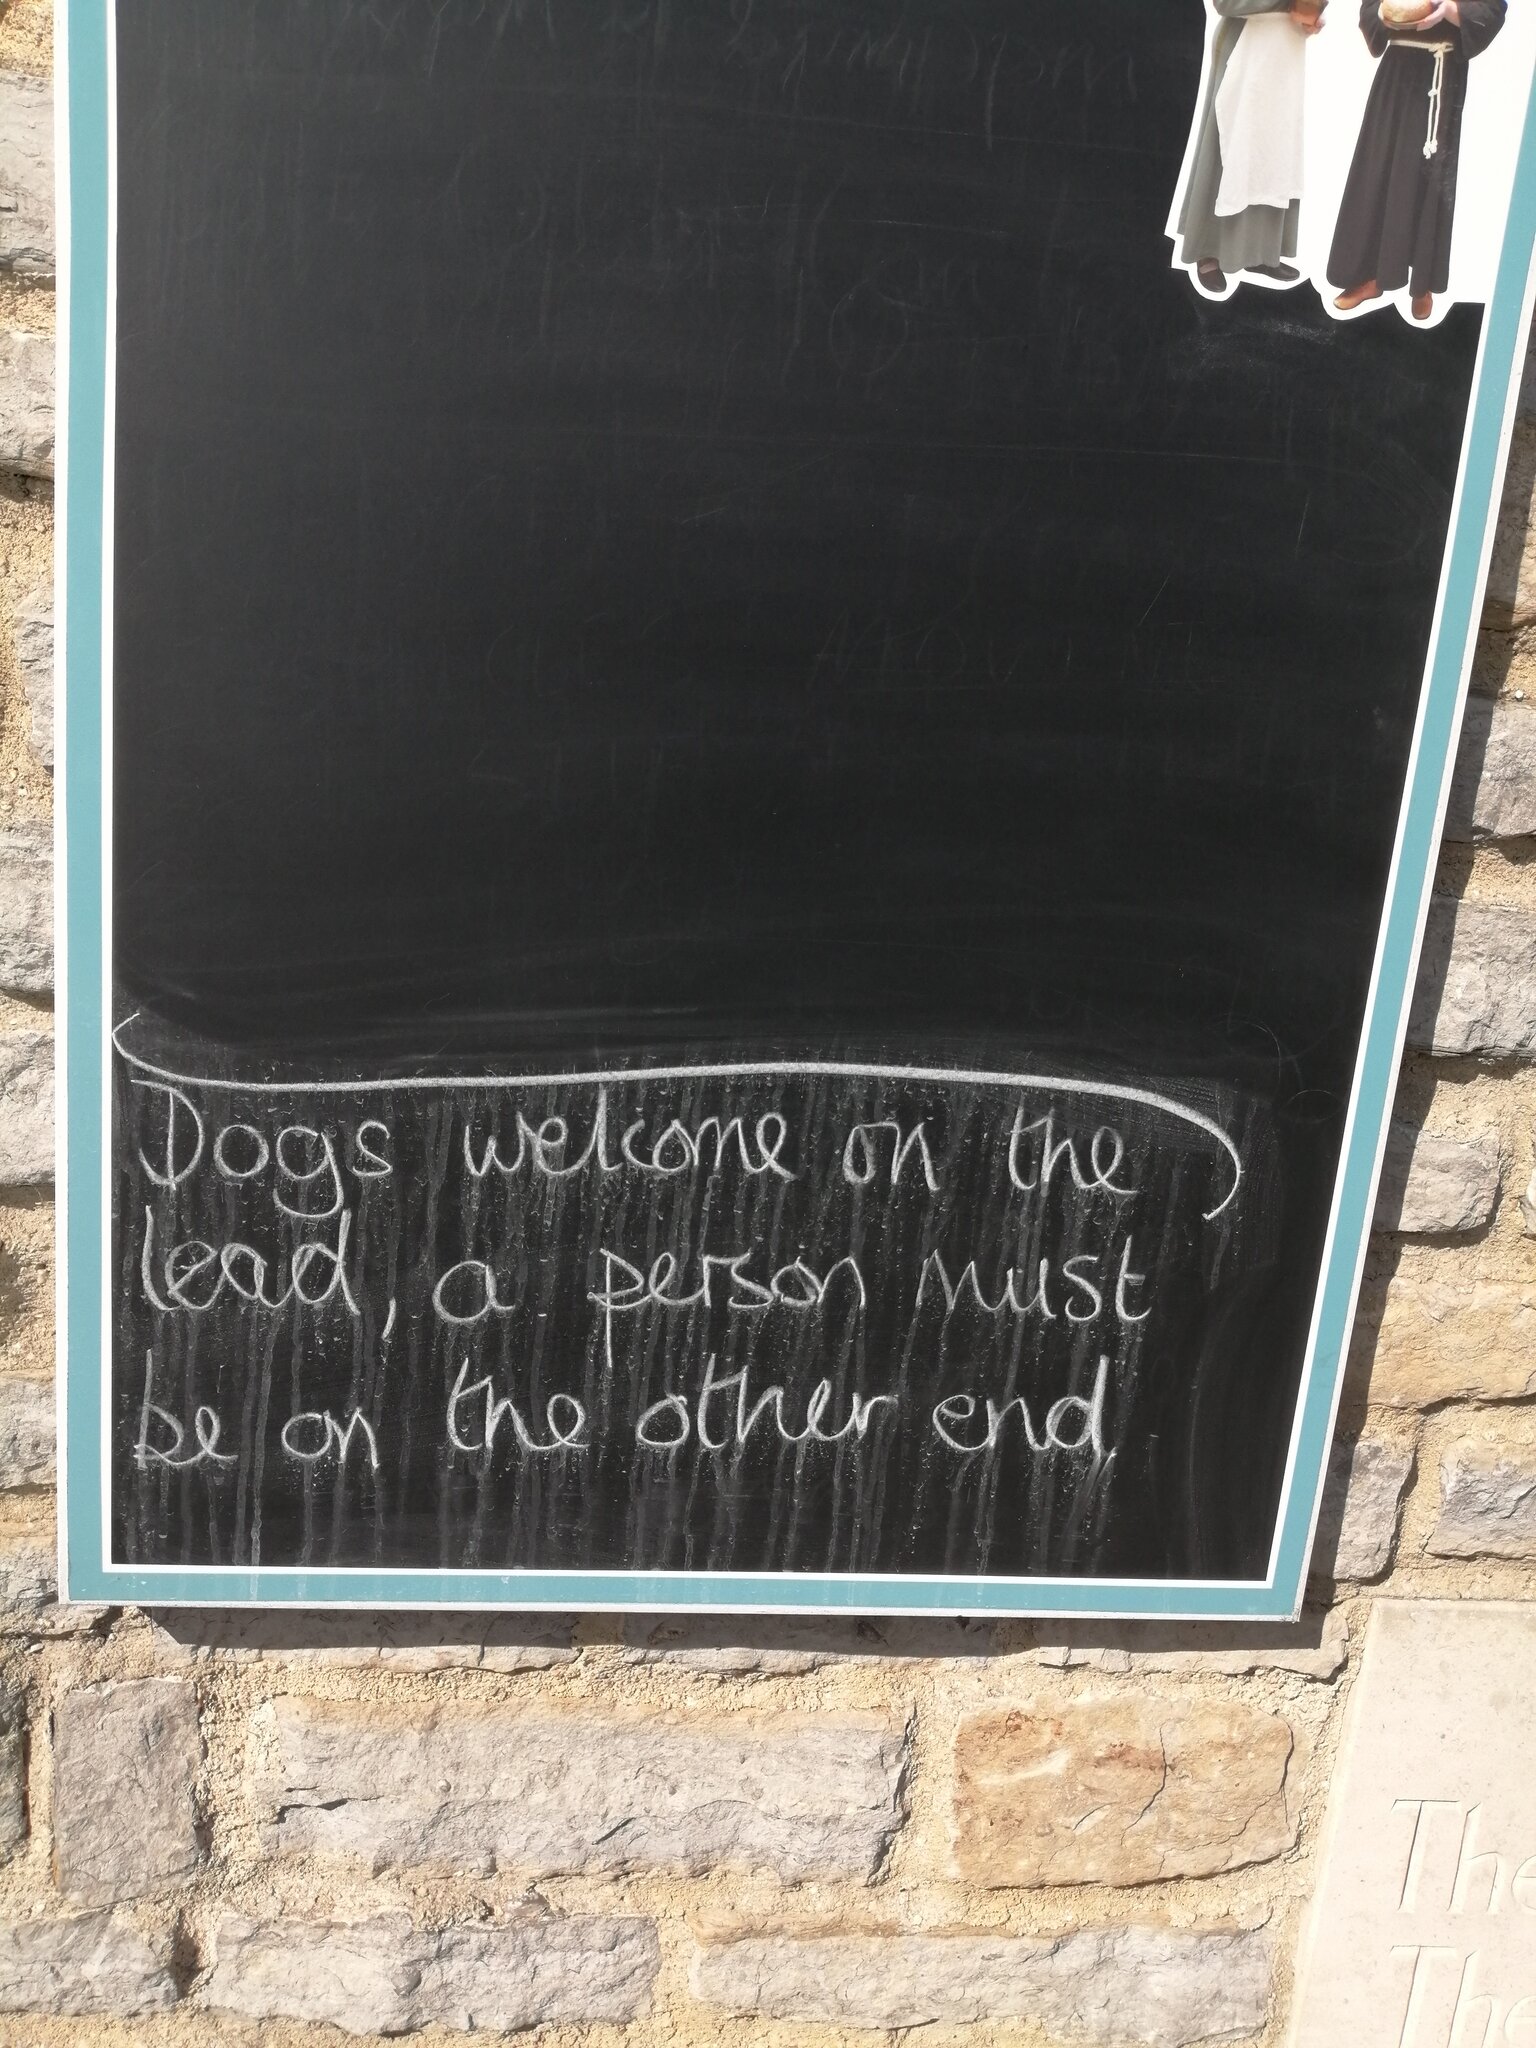 Dogs welcome on the
lead, a person must
be on the other end
The
The